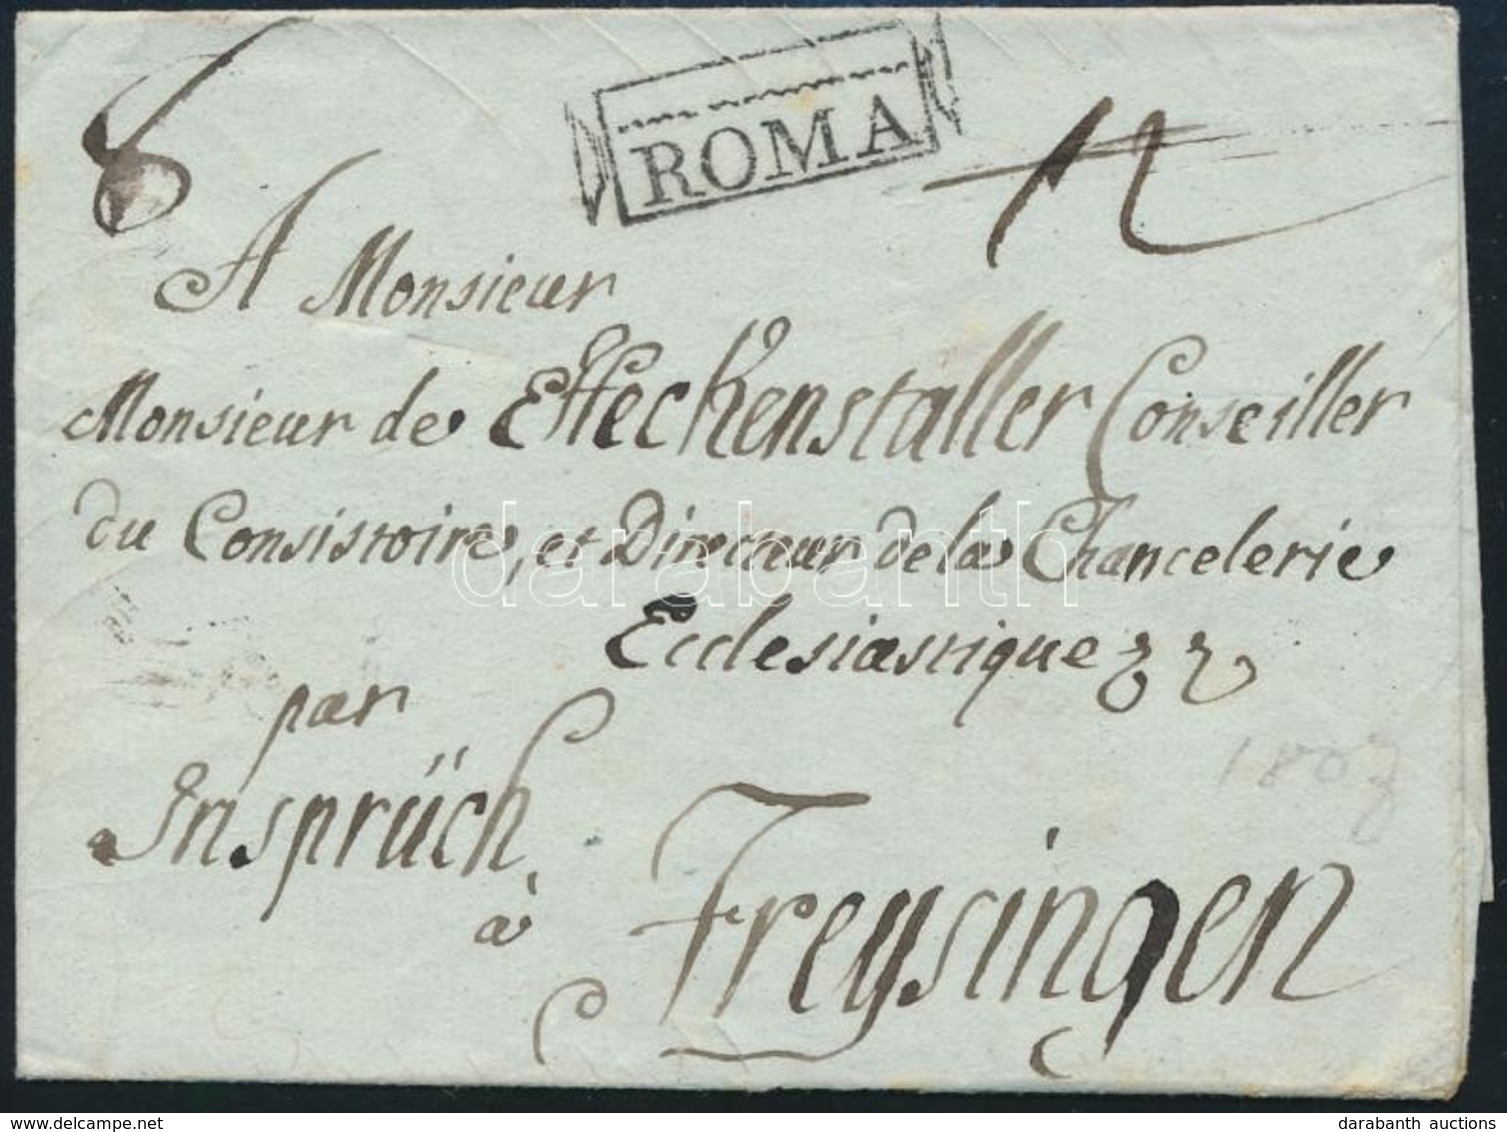 8
ROMA
12
A Monsieur
Monsieur de Heckenstaller Conseiller
du Consistoire, et Directeur de la Chancelerie
Ecclesiastique
par
Insprüch
1807
à
Freysingen
darabanth
darabanth auctions